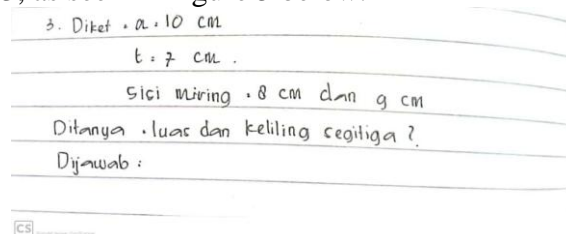 3. Diket . a . 10 cm
t : 7 cm .
Sisi miring . 8 cm dan 9 cm
Ditanya . luas dan keliling segitiga ?
Dijawab :
CS